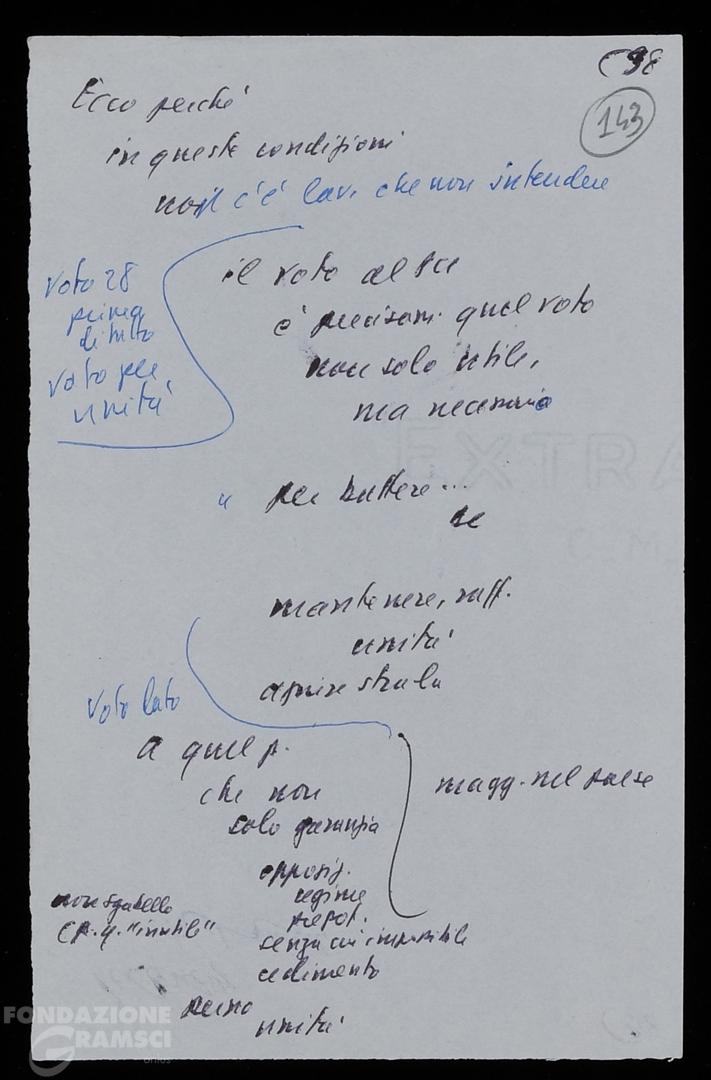 98
143
Ecco perché
in queste condizioni
non c'è lav. che non intenda
il voto al PCI
è precisam. quel voto
non solo utile,
ma necessario
voto 28
prima
di tutto
voto per
unità
per battere...
DC
mantenere, raff.
unità
aprire strada
voto dato
a quel p.
che non
solo garanzia
opposiz.
regime
prepot.
senza cui impossibile
cedimento
perno
unità
magg. nel paese
non sgabello
"inutile"
FONDAZIONE
GRAMSCI
onlus